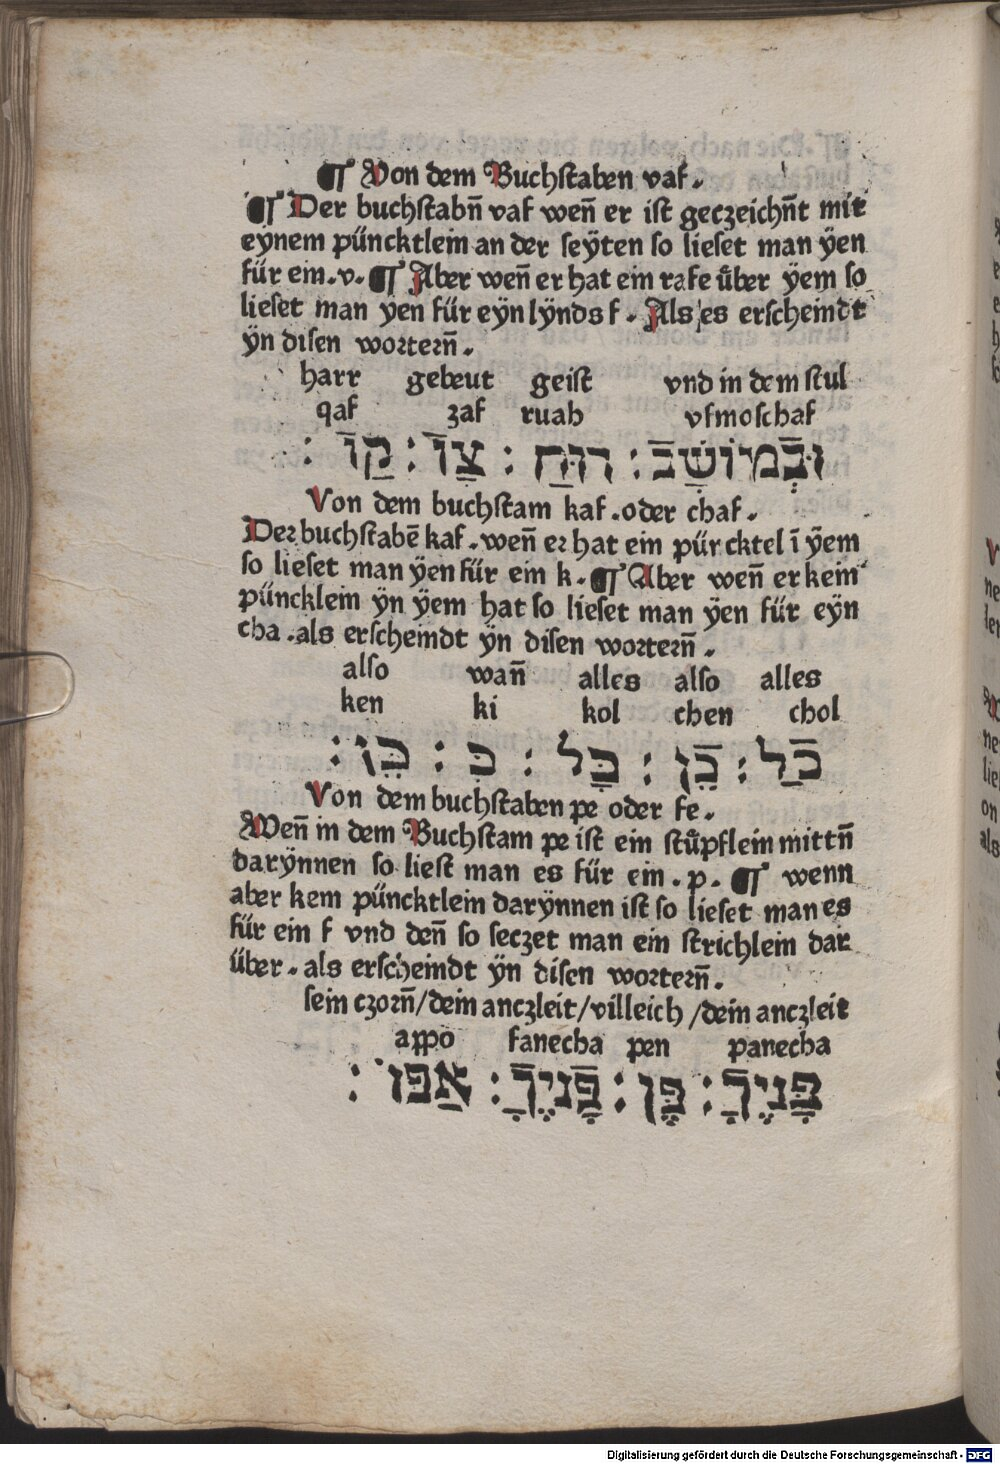 ¶ Von dem Buchstaben vaf.
¶ Der buchstabñ vaf weñ er ist geczeichñt mit
eynem püncktlein an der seÿten so lieset man ÿen
für ein.v. ¶ Aber weñ er hat ein rafe über ÿem so
lieset man ÿen für eÿn lÿnds f. Als es erscheindt
ÿn disen worterñ.
harr gebeut geist vnd in dem stul
qaf zaf ruah vfmoschaf
וּבְֿמוֹשַׁבֿ : רוּחַ : צַוֿ : קַוֿ :
Von dem buchstam kaf.oder chaf.
Der buchstabē kaf.weñ er hat ein pürcktel ī ÿem
so lieset man ÿen für ein k. ¶ Aber weñ er kein
püncklein ÿn ÿem hat so lieset man ÿen für eÿn
cha.als erscheindt ÿn disen worterñ.
also wañ alles also alles
ken ki kol chen chol
כֿל : כֵֿן : כָּל : כִּ : כֵּן :
Von dem buchstaben pe oder fe.
Weñ in dem Buchstam pe ist ein stüpflein mittñ
darÿnnen so liest man es für ein.p. ¶ wenn
aber kem püncktlein darÿnnen ist so lieset man es
für ein f vnd deñ so seczet man ein strichlein dar
über.als erscheindt ÿn disen worterñ.
sein czorñ/dein anczleit/villeich/dein anczleit
appo fanecha pen panecha
פָּנֶיךָֿ : פֶּן : פָֿנֶיךָֿ : אַפּוֹ :
Digitalisierung gefördert durch die Deutsche Forschungsgemeinschaft - DFG